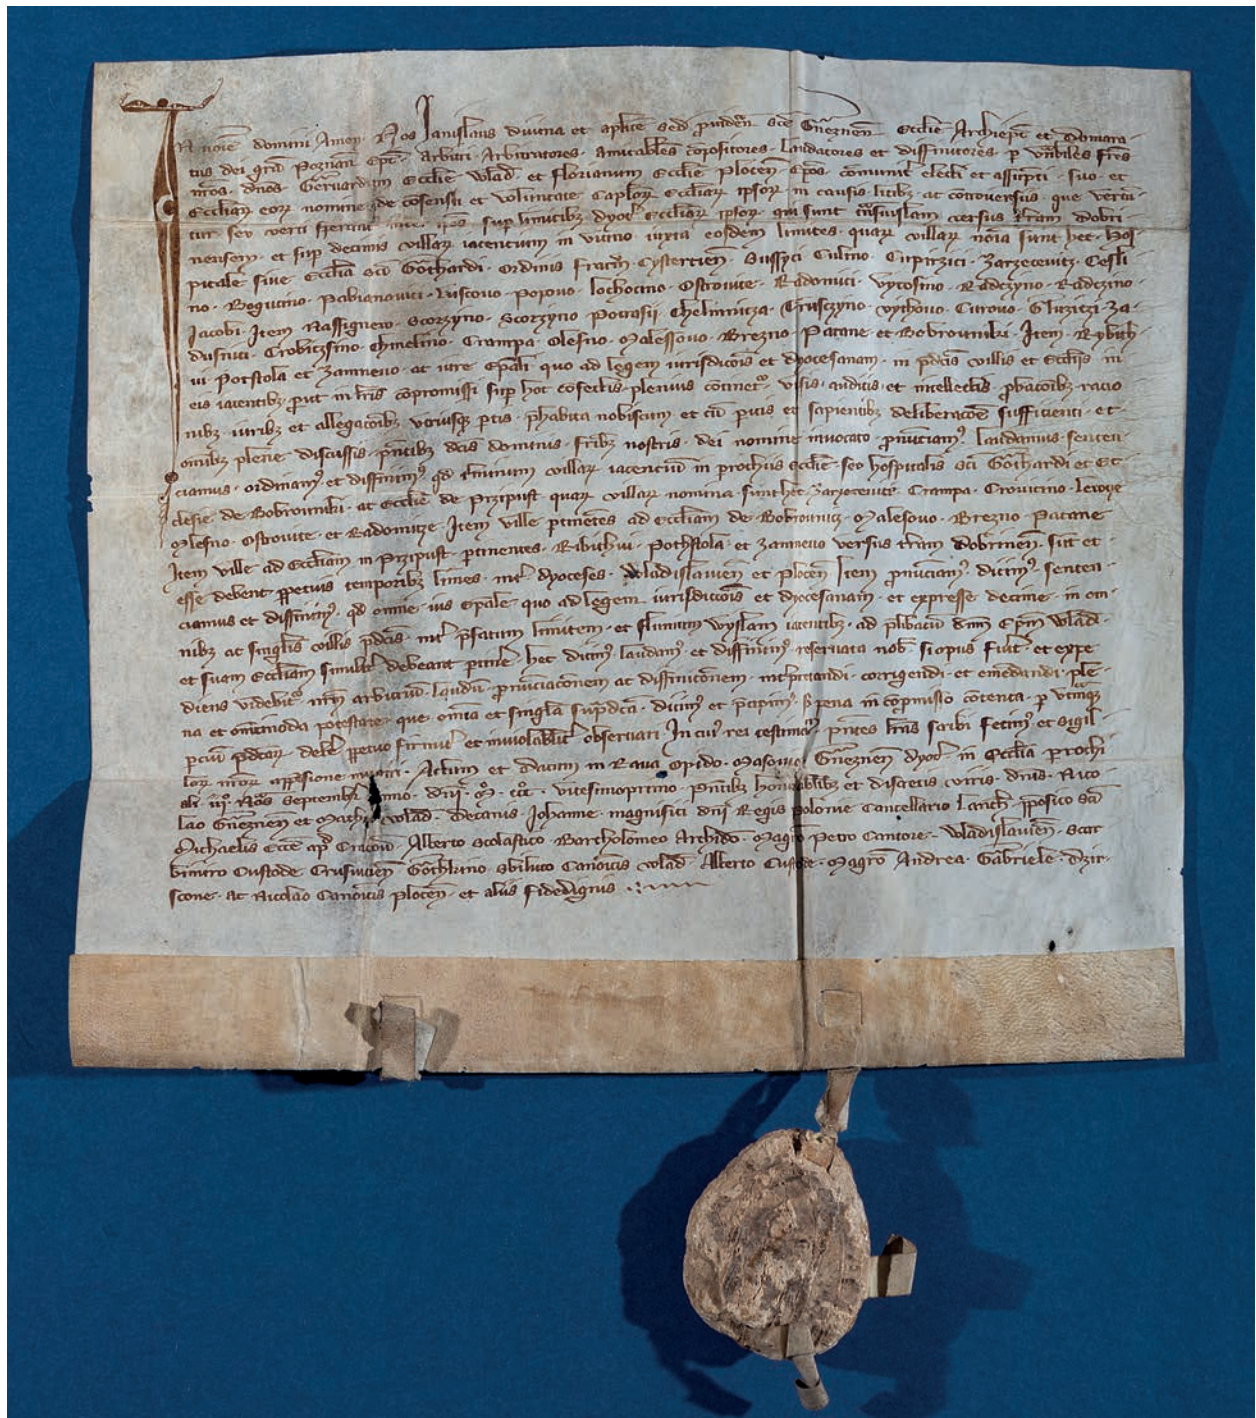 In noīe domini Amen. Nos Janislaus divina et aplice sed provideñ sce Gneznen Ecclie Archiepc et Domara
tus dei gra Poznan Epc. Arbitri. Arbitratores. Amicabiles copositores. Laudatores et diffinitores. p vnbiles fres
nros. dnos Gervardum Ecclie Wlad. et Florianum Ecclie Plocen Epos. comunit electi et assupti. suo et
Eccliar eor nomine de cosensu et voluntate Caplor Eccliar ipsor in causis litibz at controversiis que verte
tur seu verti sperant inter ipos sup limitibz dyoc Eccliar ipsor qui sunt trasuislam versus tram dobri
nensem. et sup decimis villar iacentium in vicino iuxta eosdem limites. quar villar noia sunt hec. Hos
pitale sive Ecclia sci Gothardi. Ordinis Fratru Cystercien. Sussyci Culino. Cupirzici. Zarzecevitz. Cesli
no. Bogucino. Pabianovici. Luscovo. Popovo. lochocino. Ostrovite. Radomici. Vycosino. Radczyno. Radczino
Jacobi. Item Nassignevo. Scorzyno. Scorzyno Potrasii. Chelmitza. Trusczyno. Vythovo. Curovo. Gluzitzi. Za
dusnici. Crobitzsino. Chmelino. Crampa. Olesno. Malessovo. Brezno. Patane et Bobrouniki. Item. Rybith
vi Potstola et Zamnevo. at iure Epali quo ad legem iurisdicois et dyocesanam. in pdcis villis et Ecclis in
eis iacentibz put in lris copromissi sup hoc cofectis plenius continet. visis. auditis. et intellectis pbacoibz racio
nibz. iuribz et allegacoibz vtriusqz ptis. phabita nobiscum. et cu piis et sapientibz deliberacoe sufficienti. et
omibz plene discussis. pntibz dcis dominis. fribz nostris. dei nomine invocato. pnuciam. laudamus. senten
ciamus. ordinam et diffinim qd tminum villar iacenciu in prochiis Ecclie. seu hospitalis sci Gothardi et Ec
clesie de Bobrouniki. at Ecclie de Przipust quar villar nomina sunt hec. Zarzecevitz. Crampa. Crovicino. Letoye
Olesno. Ostrovite. et Radomitze. Item ville ptinetes ad Eccliam de Bobrounitz. Malesovo. Brezno. Patane
Item ville ad Eccliam in Przipust. ptinentes. Ribithvi. Pothstola. et Zamnevo versus tram Dobrinen. sut et
esse debent ppetuis temporibz limes. int dyoceses. Wladislavien et Plocen Item pnuciam. dicim. senten
ciamus et diffinim. qd omne ius Epale. quo ad legem iurisdicois et dyocesanam. et expresse decime. in om
nibz ac singlis villis pdcis. int psatum limitem. et fluvium Wyslam iacentibz. ad plibatu dnm Epm Wlad.
et suam Eccliam simulit debeant ptine. hec dicim. laudam. et diffinim. reservata nob. si opus fuit. et expe
diens videbit nrm arbitriu. laudu. pnuciaconem ac diffinitionem. intpretandi. corrigendi. et emedandi. ple
na et omimoda potestate. que omia et singla supdca. dicim et pcipim. sb pena in copmisso cotenta. p vtrumqz
pciu pdcar debe ppetuo firmit et inviolabilit observari. In cui rei testimoiu. pntes lras scribi fecim. et sigil
lor nror appesione muniri. Actum et datum in Rava Opido. Masovie. Gneznen dyoc. in Ecclia prochi
ali iiij. Nos Septembr Anno. dni. M. ccc. vicesimoprimo. pntibz honoabilibz et discretis viris. dnis. Nico
lao Gneznen et Mathia Wlad. Decanis. Johanne. magnifici dni Regis Polonie Cancellario Lancic. pposito sci
Michaelis Ecce ap Cracou. Alberto Scolastico. Bartholomeo Archido. Magro Petro Cantore. Wladislavien. Scar
bimiro Custode Crusvicien. Gothkino. Sbiluto Canoicis Wlad. Alberto Custode. Magro Andrea. Gabriele. dzir
scone. at Nicolao Canoicis Plocen. et aliis fidedignis